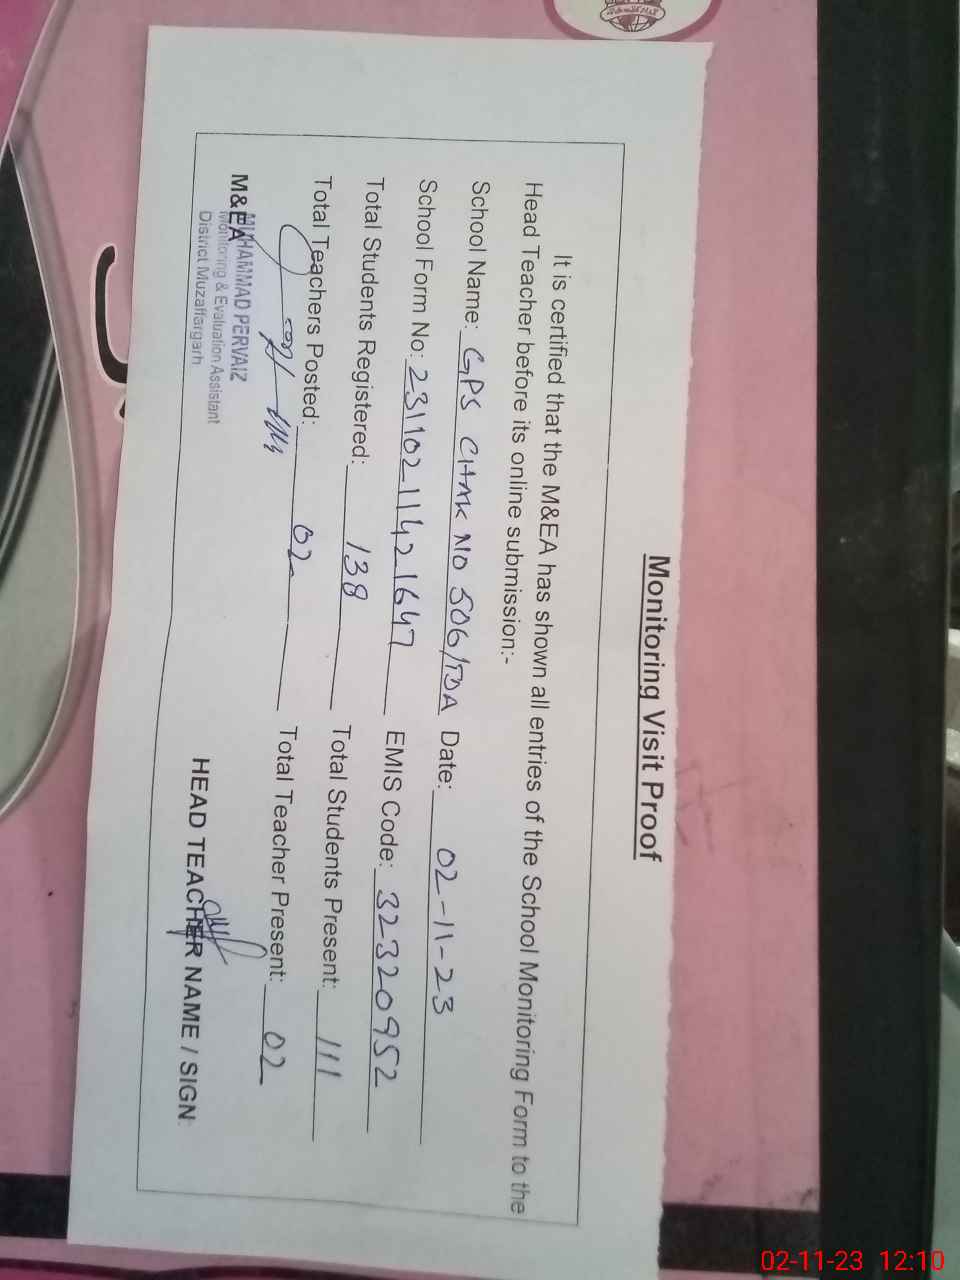 Monitoring Visit Proof
It is certified that the M&EA has shown all entries of the School Monitoring Form to the
Head Teacher before its online submission:-
School Name: GPS CHAK NO 506/TDA Date: 02-11-23
School Form No: 23110211421647 EMIS Code: 32320952
Total Students Registered: 138 Total Students Present: 111
Total Teachers Posted: 02 Total Teacher Present: 02
M&EA
MUHAMMAD PERVAIZ
Monitoring & Evaluation Assistant
District Muzaffargarh
HEAD TEACHER NAME / SIGN:
02-11-23 12:10